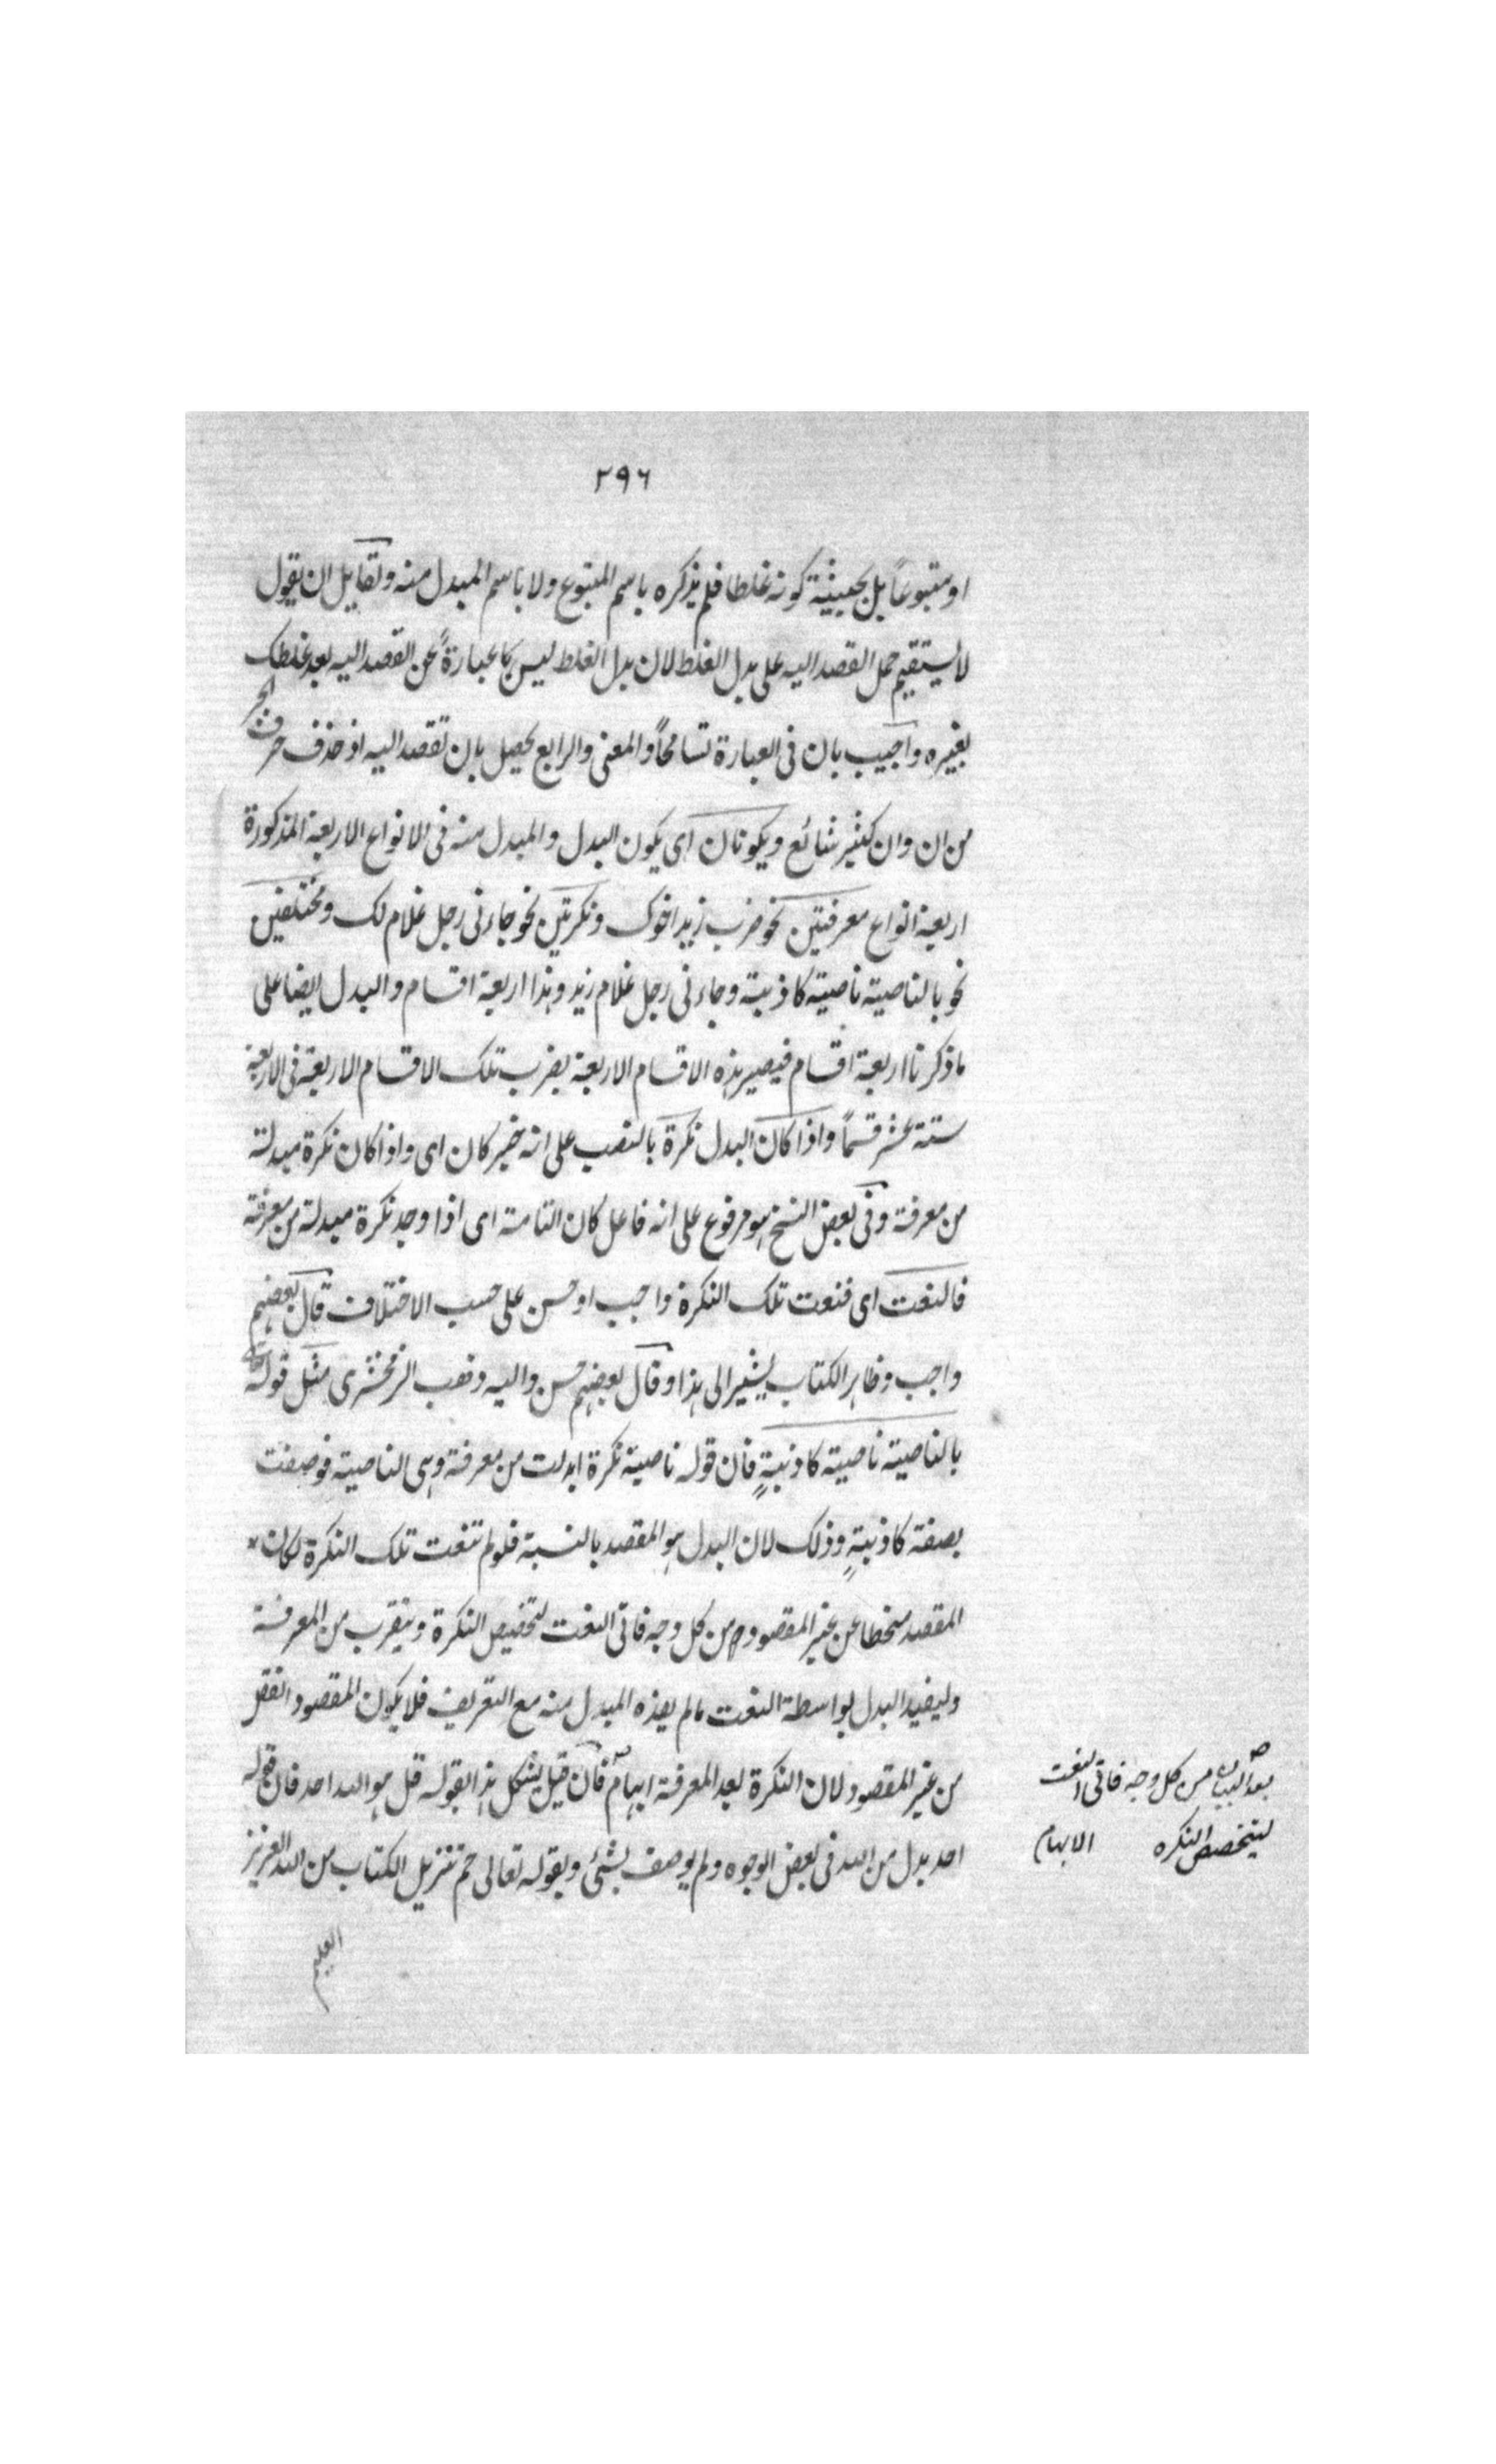 ٢٩٦
او متبوعاً بل بحيثية كونه غلطا فلم يذكره باسم المتبوع ولا باسم المبدل منه ولقايل ان يقول
لا يستقيم حمل القصد اليه على بدل الغلط لان بدل الغلط ليس عبارةً عن القصد اليه بعد غلطك
بغيره واجيب بان فى العبارة تسامحاً والمعنى والرابع يحصل بان تقصد اليه اذ حذف حرف الجر
من ان وان كثير شائع ويكونان اى يكون البدل والمبدل منه فى الانواع الاربعة المذكورة
اربعة انواع معرفتين نحو ضرب زيد اخوك ونكرتين نحو جاءنى رجل غلام لك ومختلفين
نحو بالناصية ناصية كاذبة وجاءنى رجل غلام زيد وهذا اربعة اقسام والبدل ايضا على
ما ذكرنا اربعة اقسام فيصير هذه الاقسام الاربعة بضرب تلك الاقسام الاربعة فى الاربعة
ستة عشر قسماً واذا كان البدل نكرة بالنصب على انه خبر كان اى واذا كان نكرة مبدلة
من معرفة وفى بعض النسخ هو مرفوع على انه فاعل كان التامة اى اذا وجد نكرة مبدلة من معرفة
فالنعت اى فنعت تلك النكرة واجب او حسن على حسب الاختلاف قال بعضهم
واجب وظاهر الكتاب يشير الى هذا وقال بعضهم حسن واليه ذهب الزمخشرى مثل قوله تعالى
بالناصية ناصية كاذبةٍ فان قوله ناصية نكرة ابدلت من معرفة وهى الناصية فوصفت
بصفة كاذبةٍ وذلك لان البدل هو المقصد بالنسبة فلو لم تنعت تلك النكرة لكان
المقصد منحطا عن غير المقصود من كل وجه فاتى النعت لتخصيص النكرة ويتقرب من المعرفة
وليفيد البدل بواسطة النعت ما لم يفده المبدل منه مع التعريف فلا يكون المقصود انقص
من غير المقصود لان النكرة بعد المعرفة ابهام فان قيل يشكل هذا بقوله قل هو الله احد فان قوله
احد بدل من الله فى بعض الوجوه ولم يوصف بشئ وبقوله تعالى حم تنزيل الكتاب من الله العزيز
العليم
بعد البيان من كل وجه فاتى النعت
ليتخصص النكره الابهام